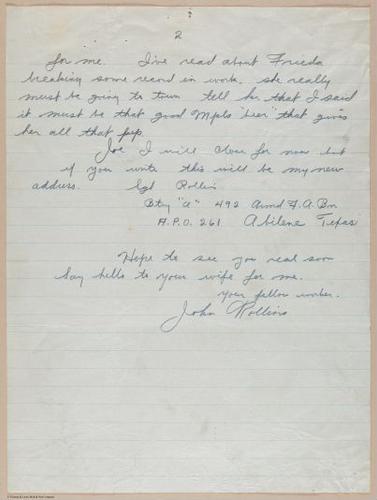 2
for me. I've read about Frieda
breaking some record in work. she really
must be going to town tell her that I said
it must be that good Mpls "beer" that gives
her all that pep.
Joe I will close for now but
if you write this will be my new
address. Sgt Rollins
Btry "A" 492 Armd F.A. Bn
A.P.O. 261 Abilene Texas
Hope to see you real soon
Say hello to your wife for me.
Your fellow worker.
John Rollins